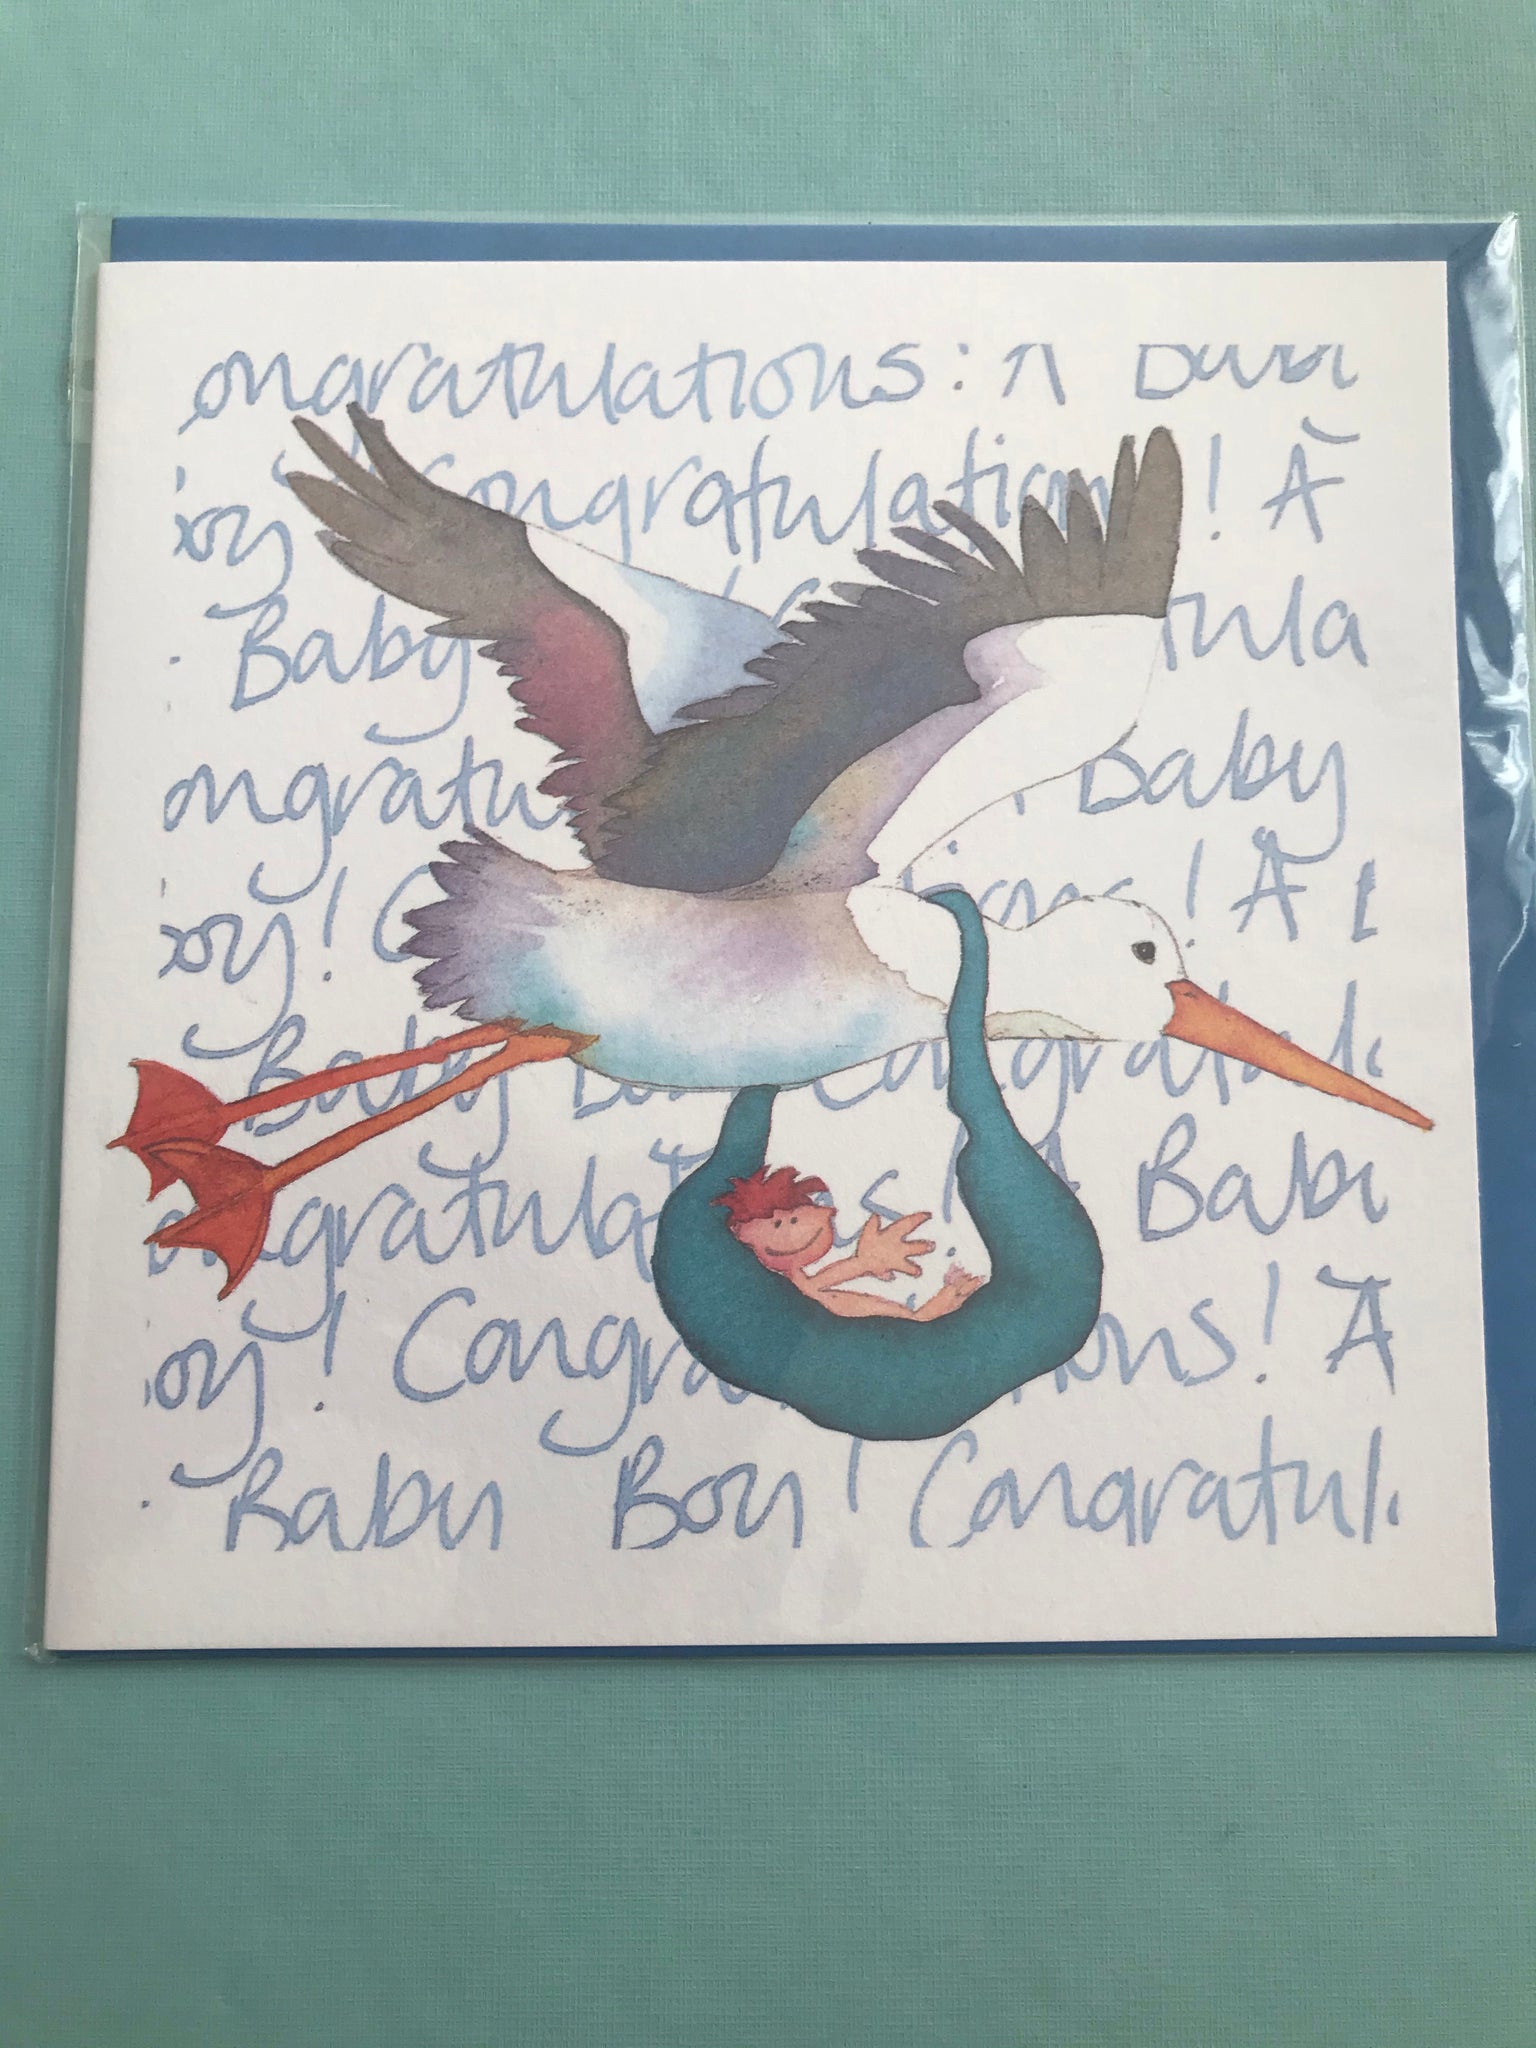 ongratulations! A
oy! Congratulations! A
Baby tula
ongratu Baby
oy! C ions! A
Baby Congratul
ongratulations! A Baby
oy! Congratulations! A
Baby Boy! Congratul